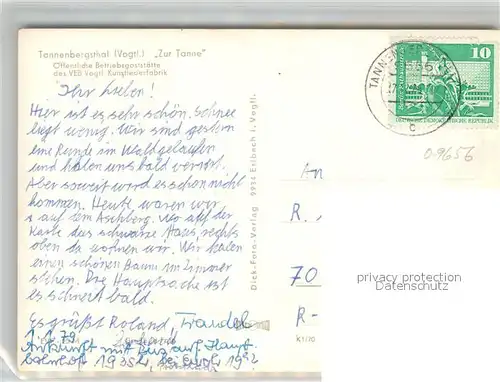 Tannenbergsthal (Vogtl.) „Zur Tanne"
Öffentliche Betriebsgaststätte
des VEB Vogtl. Kunstlederfabrik
Ihr Lieben!
Hier ist es sehr schön. Schnee
liegt wenig. Wir sind gestern
eine Runde im Wald gelaufen
und haben uns bald verirrt.
Aber soweit wird es schon nicht
kommen. Heute waren wir
auf dem Aschberg. Wo auf der
Karte das schwarze Haus, rechts
oben da wohnen wir. Wir haben
einen schönen Baum im Zimmer
stehen. Die Hauptsache ist
es schneit bald.
Es grüßt Roland, Traudel
1.1.79
Ankunft mit Bus auf Haupt-
bahnhof 19
Dick-Foto-Verlag 9934 Erlbach i. Vogtl.
An
R.
70
R-
TANN
10
DEUTSCHE DEMOKRATISCHE REPUBLIK
c
09656
privacy protection
Datenschutz